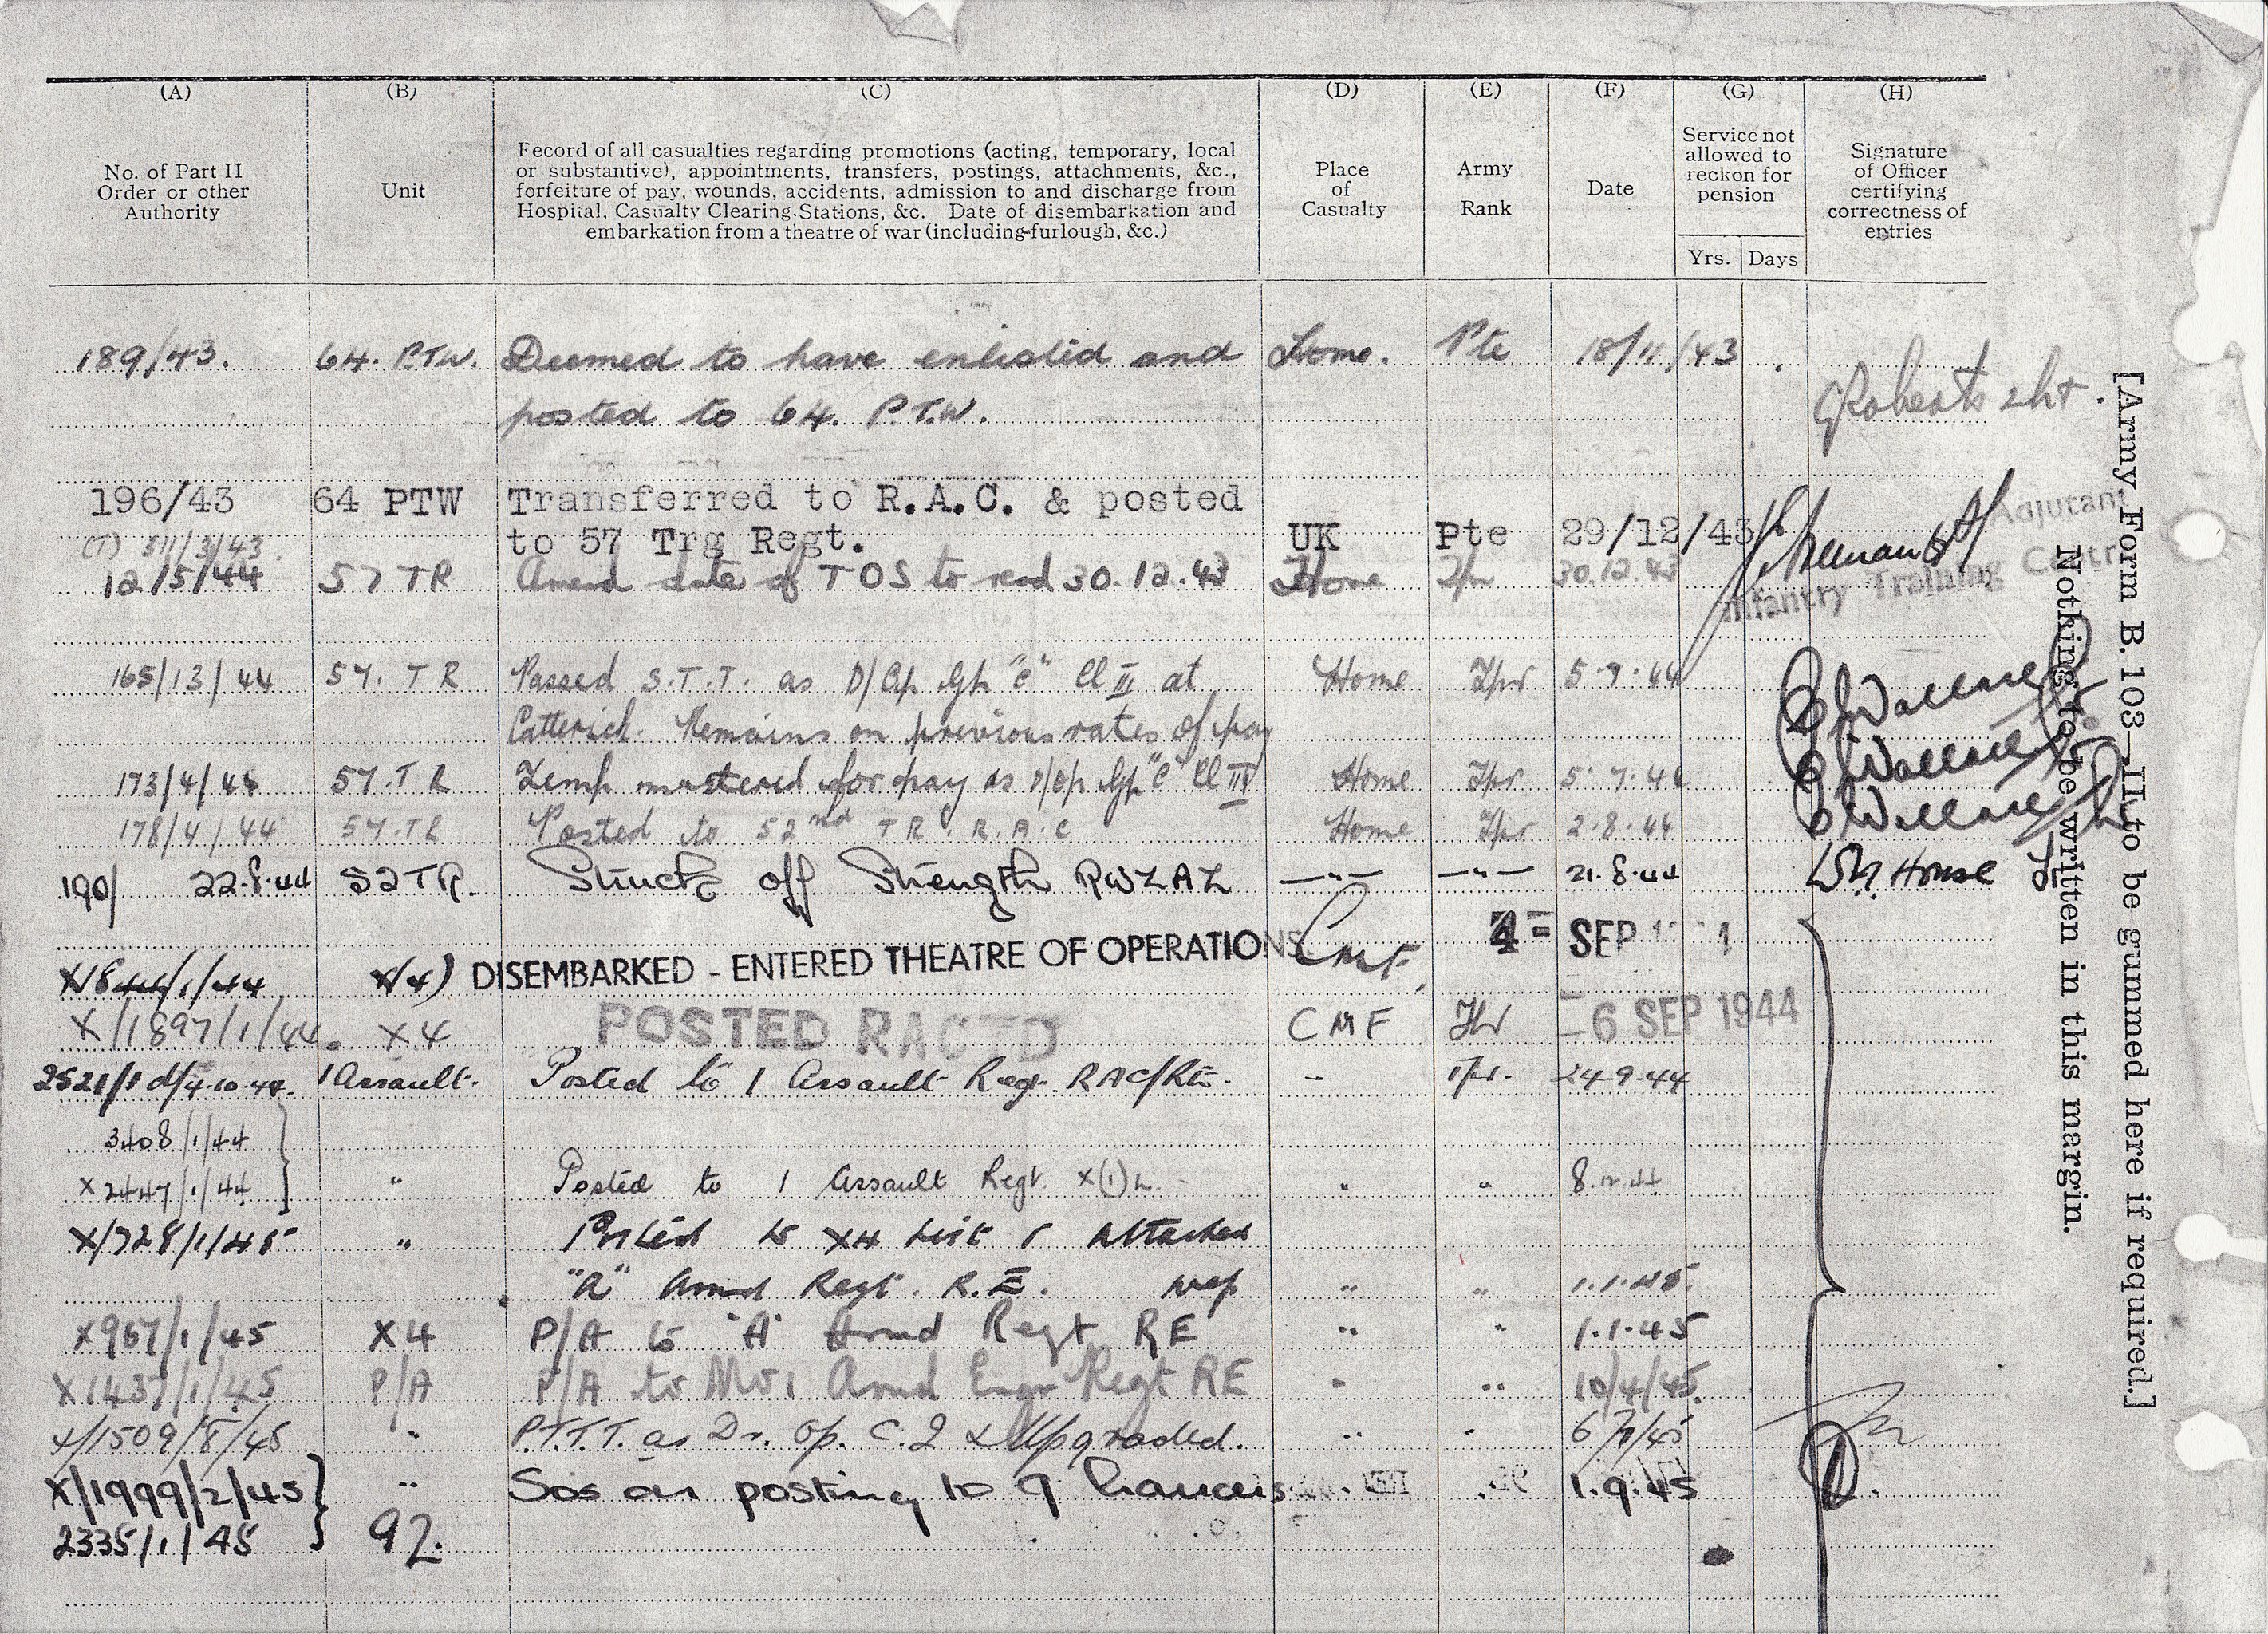 (A) (B) (C) (D) (E) (F) (G) (H)
No. of Part II
Order or other
Authority
Unit
Record of all casualties regarding promotions (acting, temporary, local
or substantive), appointments, transfers, postings, attachments, &c.,
forfeiture of pay, wounds, accidents, admission to and discharge from
Hospital, Casualty Clearing Stations, &c. Date of disembarkation and
embarkation from a theatre of war (including furlough, &c.)
Place
of
Casualty
Army
Rank
Date
Service not
allowed to
reckon for
pension
Yrs. Days
Signature
of Officer
certifying
correctness of
entries
189/43. 64. P.T.W. Deemed to have enlisted and Home. Pte 18/11/43
posted to 64. P.T.W. Roberts 2Lt.
196/43 64 PTW Transferred to R.A.C. & posted
to 57 Trg Regt. UK Pte 29/12/43
Adjutant
Infantry Training Centre
12/5/44 57 TR Amend date of TOS to read 30.12.43 Home Tpr 30.12.43
165/13/44 57. T R Passed S.T.T. as D/Op Gp "C" Cl III at Home Tpr 5.7.44 Wallace
Catterick. Remains on previous rates of pay
173/4/44 57. T R Temp mustered for pay as D/Op Gp "C" Cl III Home Tpr 5.7.44 Wallace
178/4/44 57. T R Posted to 52nd T R. R.A.C Home Tpr 2.8.44 Wallace
190/ 22.8.44 52 TR. Struck off Strength — " — — " — 21.8.44 House
X/4) DISEMBARKED - ENTERED THEATRE OF OPERATIONS CMF 4 = SEP
X/1897/1/44 X4 POSTED RACTD CMF Tpr -6 SEP 1944
2521/1 d/4.10.44. 1 Assault. Posted to 1 Assault Regt. RAC/RE. - Tpr. 24.9.44
3408/1/44
X2447/1/44 " Posted to 1 Assault Regt. X(1) " " 8.12.44
X/728/1/45 " Posted to X4 list & attached
"A" Armd Regt. R.E. wef " " 1.1.45.
X967/1/45 X4 P/A to "A" Armd Regt RE " " 1.1.45
X1437/1/45 P/A P/A to No 1 Armd Engr Regt RE " " 10/4/45.
X/1509/8/45 " P.T.T.T. as Dr. Op. C.2 & Upgraded. " "
X/1999/2/45 " Sos on posting to 9 Lancers 1.9.45
2335/1/45 92.
[Army Form B. 103—II to be gummed here if required.]
Nothing to be written in this margin.